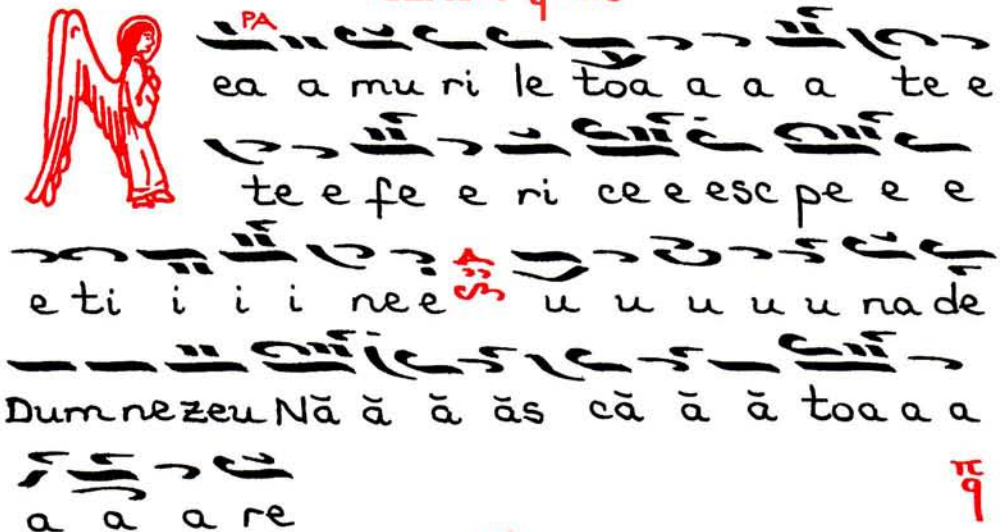 PA
ea a mu ri le toa a a a te e
te e fe e ri ce e esc pe e e
e ti i i i ne e u u u u u na de
Dum ne zeu Nă ă ă ăs că ă ă toa a a
a a a re
π q